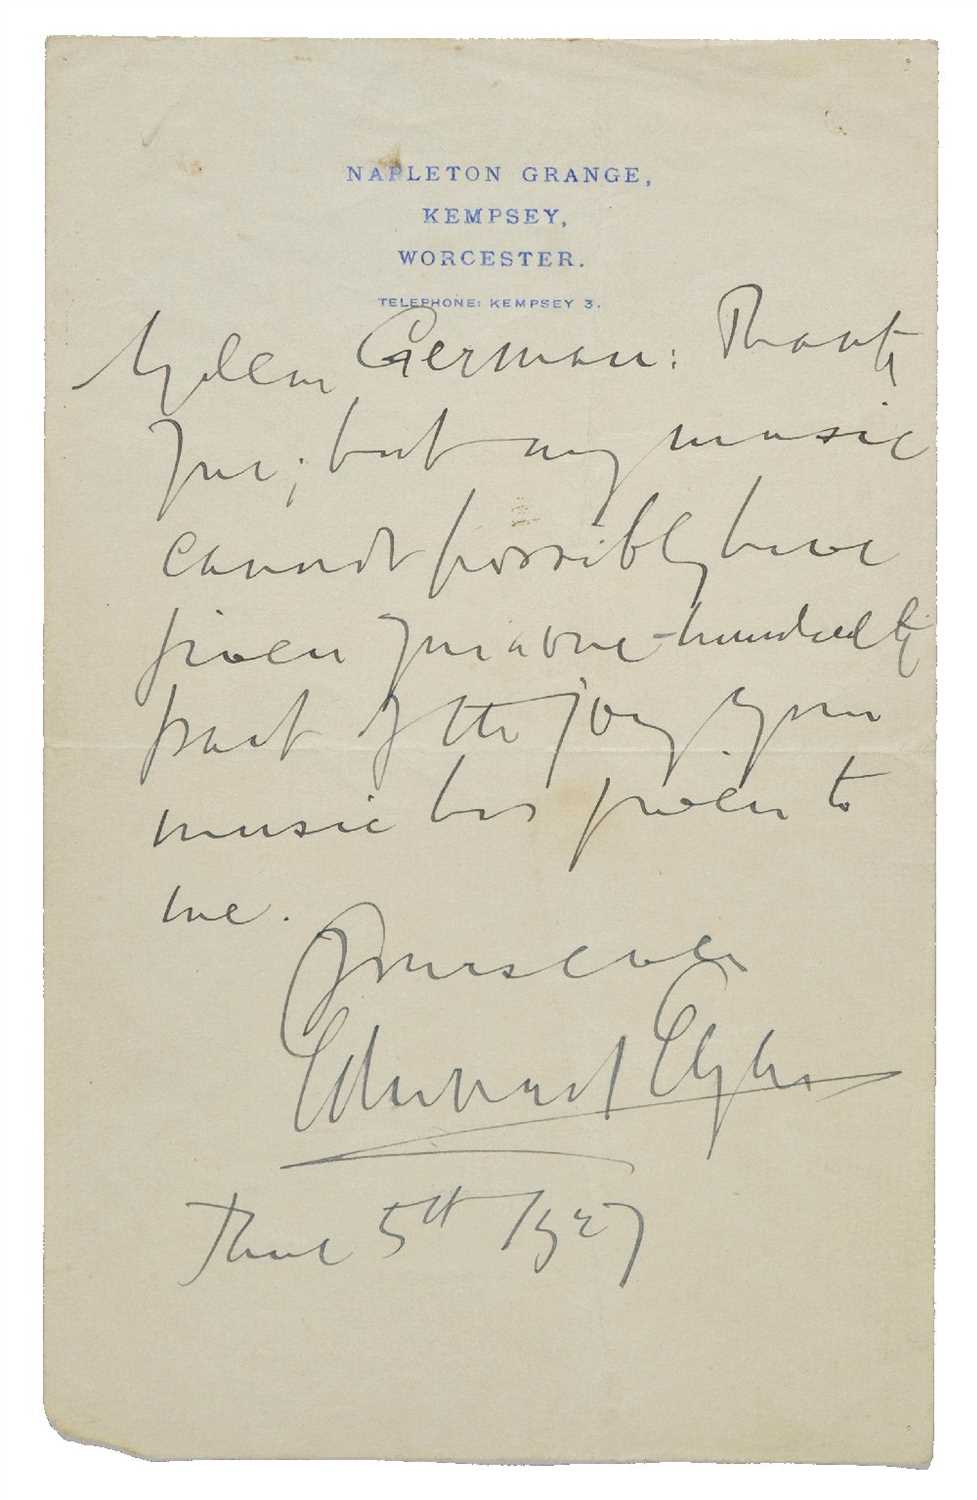 NAPLETON GRANGE,
KEMPSEY,
WORCESTER.
TELEPHONE: KEMPSEY 3.
My dear German: Thank
you; but my music
cannot possibly have
given you a one-hundredth
part of the joy your
music has given to
me.
Yours ever
Edward Elgar
June 5th 1927